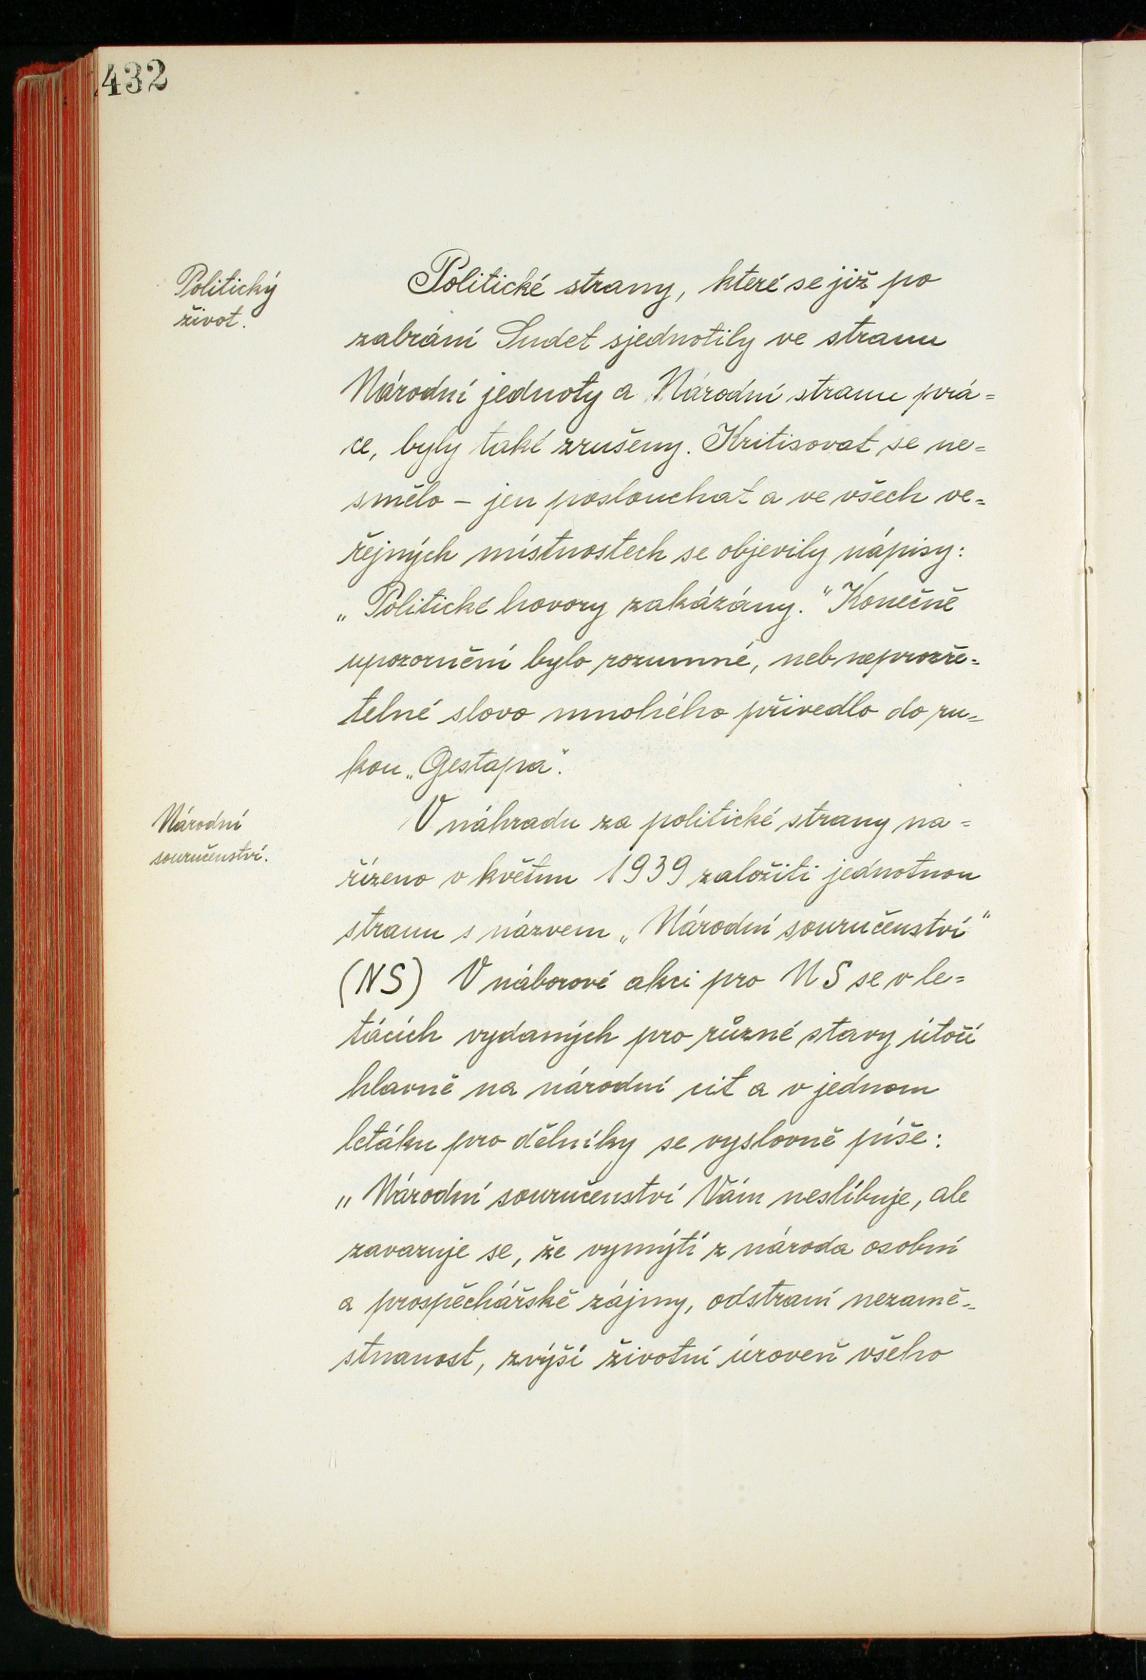 432
Politický
život.
Politické strany, které se již po
zabrání Sudet sjednotily ve stranu
Národní jednoty a Národní stranu prá=
ce, byly také zrušeny. Kritisovat se ne=
smělo – jen poslouchat a ve všech ve=
řejných místnostech se objevily nápisy:
„Politické hovory zakázány.“ Konečně
upozornění bylo rozumné, neb neprozře=
telné slovo mnohého přivedlo do ru=
kou „Gestapa“.
Národní
souručenství.
V náhradu za politické strany na=
řízeno v květnu 1939 založiti jednotnou
stranu s názvem „Národní souručenství“
(NS) V náborové akci pro NS se v le=
tácích vydaných pro různé stavy útočí
hlavně na národní cit a v jednom
letáku pro dělníky se vyslovně píše:
„Národní souručenství Vám neslibuje, ale
zavazuje se, že vymýtí z národa osobní
a prospěchářské zájmy, odstraní nezamě=
stnanost, zvýší životní úroveň všeho